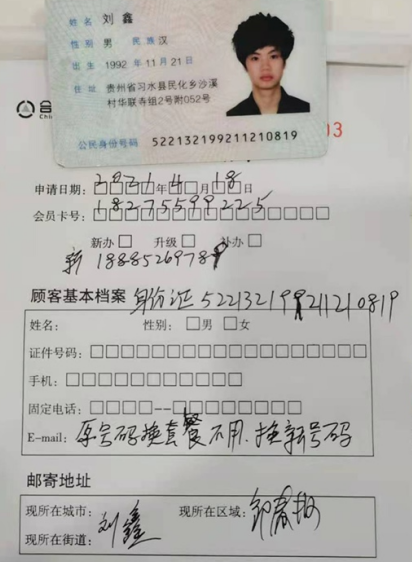 姓名 刘鑫
性别 男 民族 汉
出生 1992 年 11 月 21 日
住址 贵州省习水县民化乡沙溪
村华联寺组2号附052号
公民身份号码 522132199211210819
合
03
申请日期：2021年4月18日
会员卡号：18275599225
新办□ 升级□ 补办□
新 188852697
顾客基本档案 身份证 522132199211210819
姓名： 性别：□男 □女
证件号码：
手机：
固定电话：
E-mail：原号码换套餐不用.换新号码
邮寄地址
现所在城市： 刘鑫 现所在区域：
现所在街道：